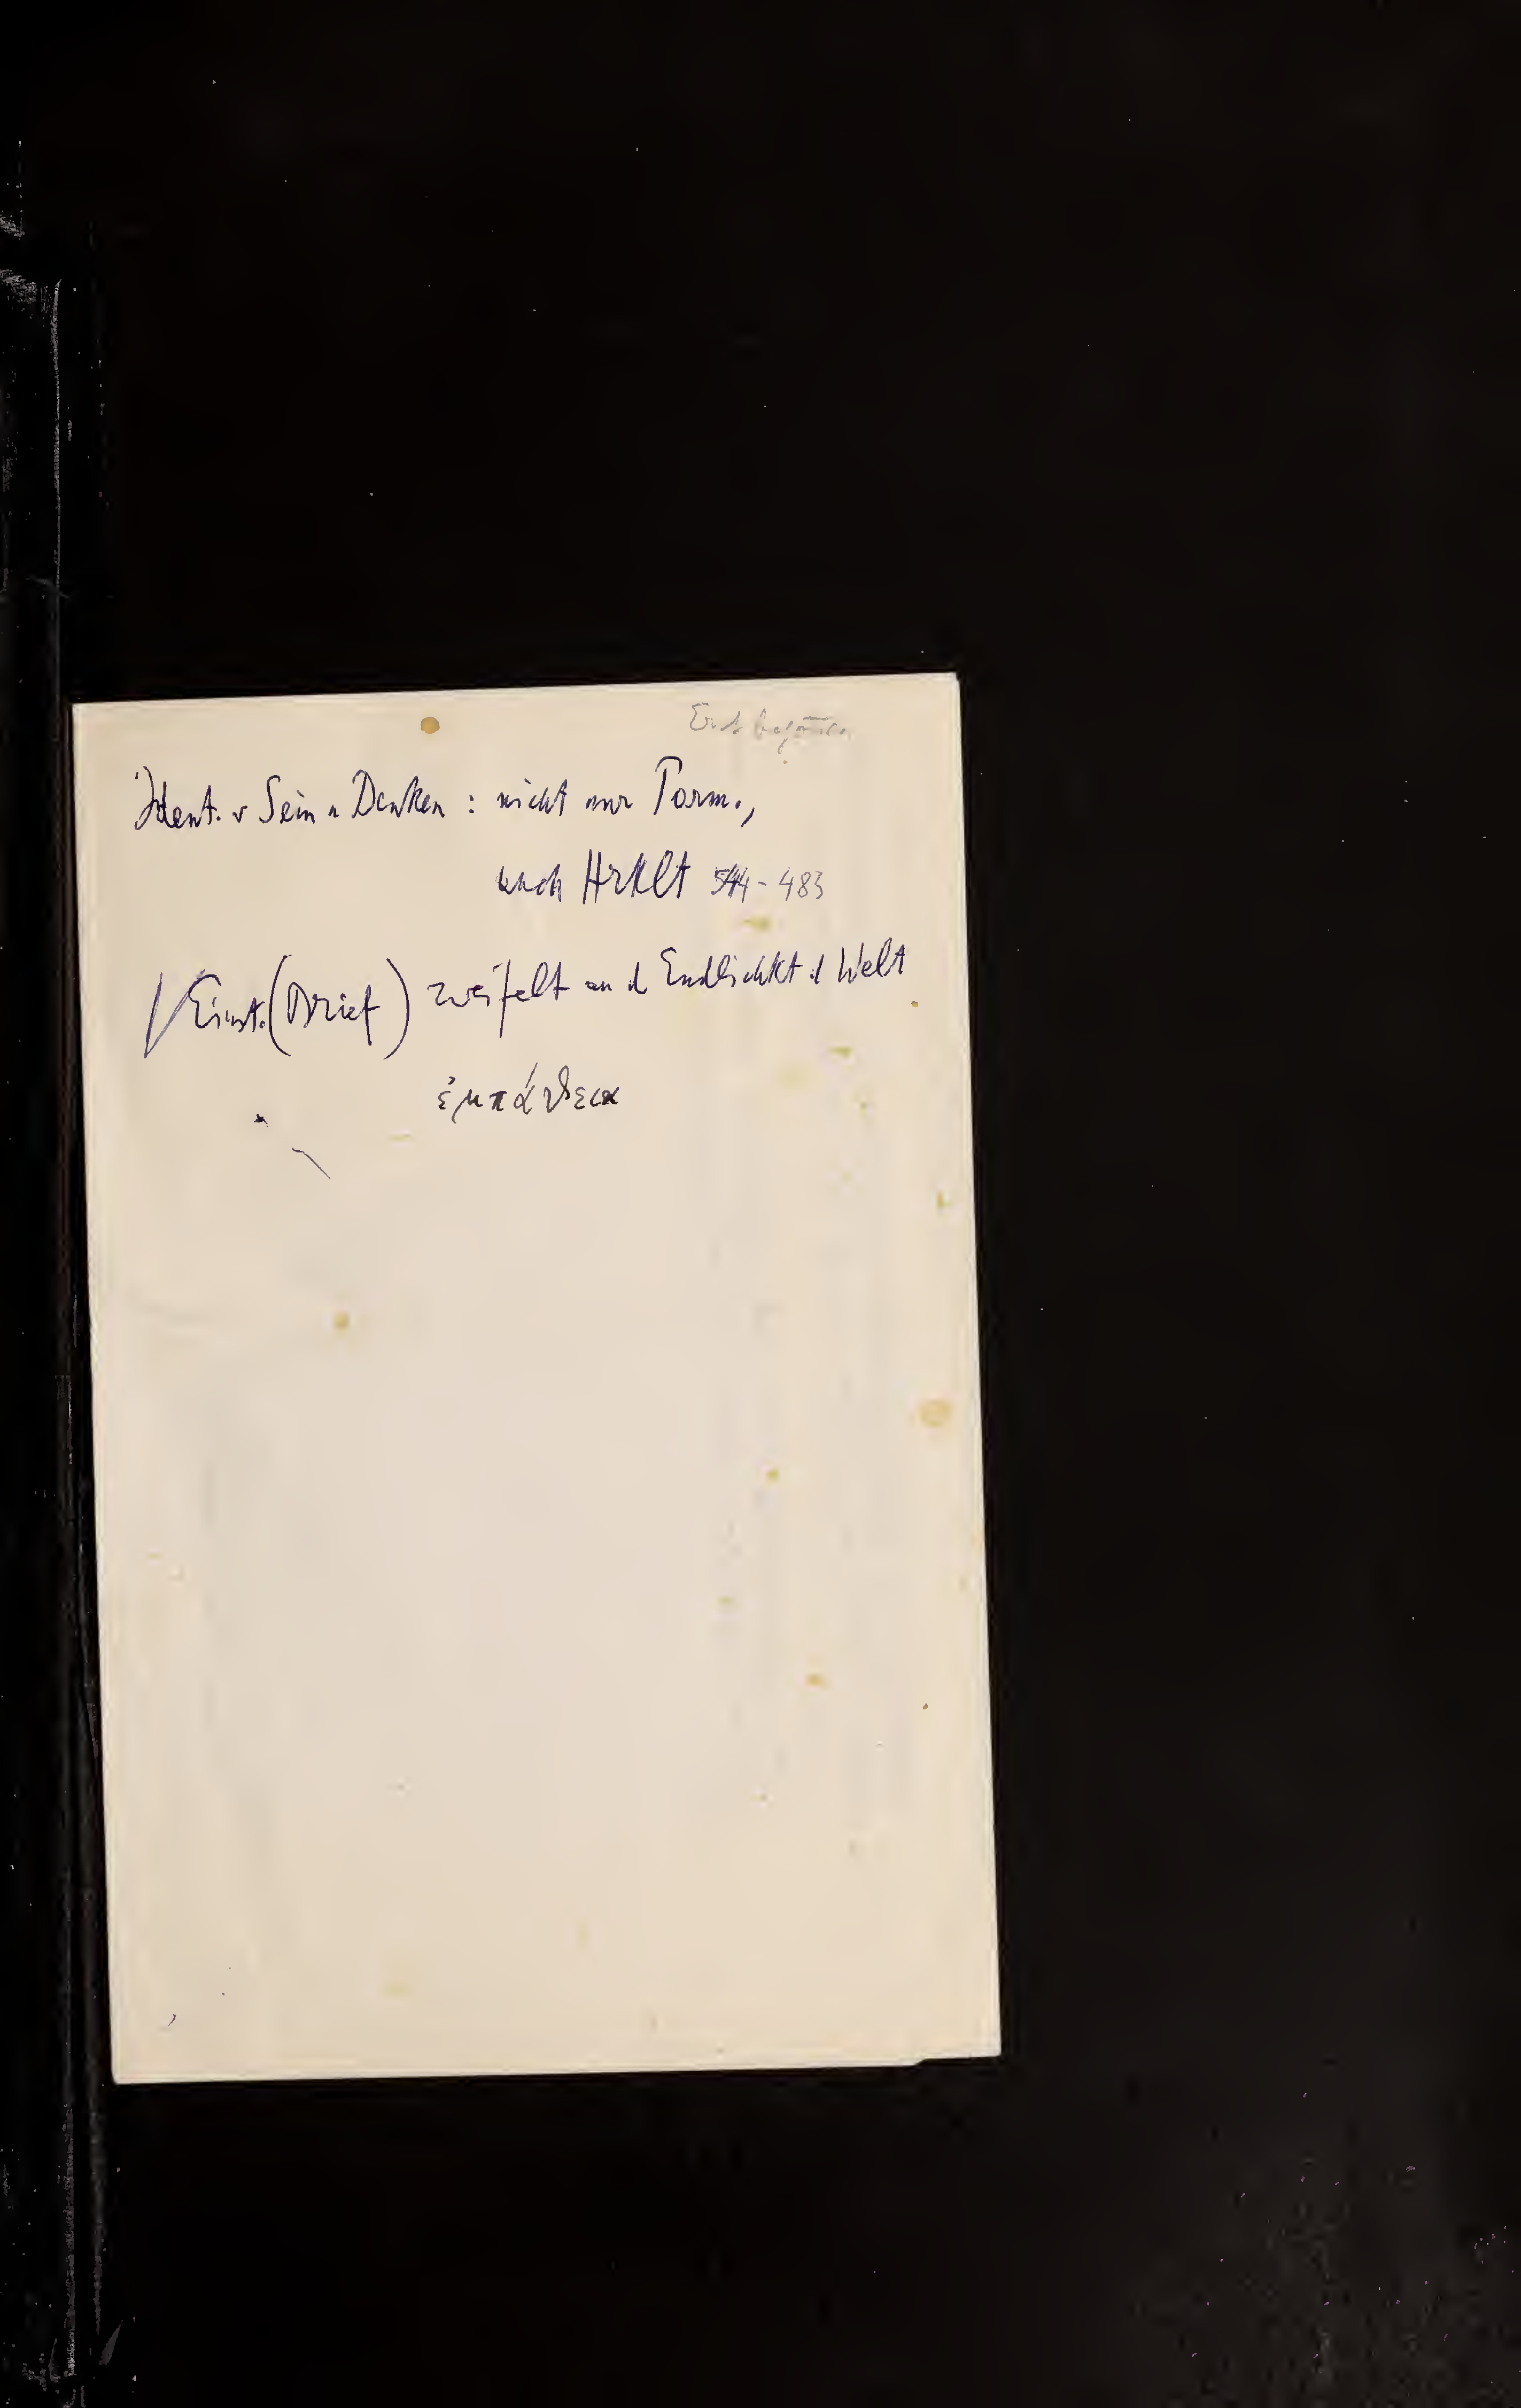 Ident. v Sein u Denken : nicht nur Parm.,
auch Hrklt 544 - 483
Einst. (Brief) zweifelt an d Endlichkt d Welt
ἐμπάθεια